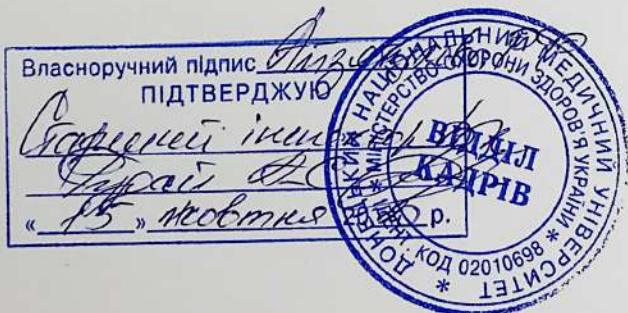 Власноручний підпис
ПІДТВЕРДЖУЮ
Старший
« 15 » жовтня 20 р.
ДОНЕЦЬКИЙ НАЦІОНАЛЬНИЙ МЕДИЧНИЙ УНІВЕРСИТЕТ *
* МІНІСТЕРСТВО ОХОРОНИ ЗДОРОВ'Я УКРАЇНИ *
ІДЕНТ. КОД 02010698
ВІДДІЛ
КАДРІВ